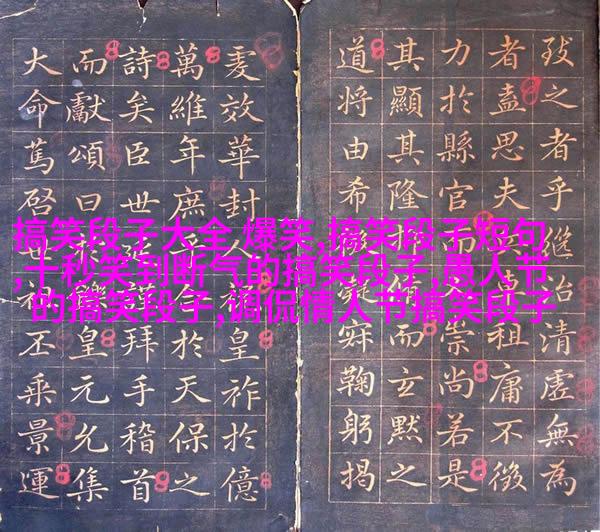 搞笑段子大全 爆笑,搞笑段子短句
,十秒笑到断气的搞笑段子,愚人节
的搞笑段子,调侃情人节搞笑段子
之者乎繼治清虛無為
者盍思夫祖庸不徵
力於縣官而崇尚若是
其顯其隆而玄默之
道將由希寂鞠躬揭
效華封人皇祚於億
萬維年庶於天保之
詩矣臣世謹拜手稽首
而獻頌曰皇元允集
大命篤啓世祖丕乘景運